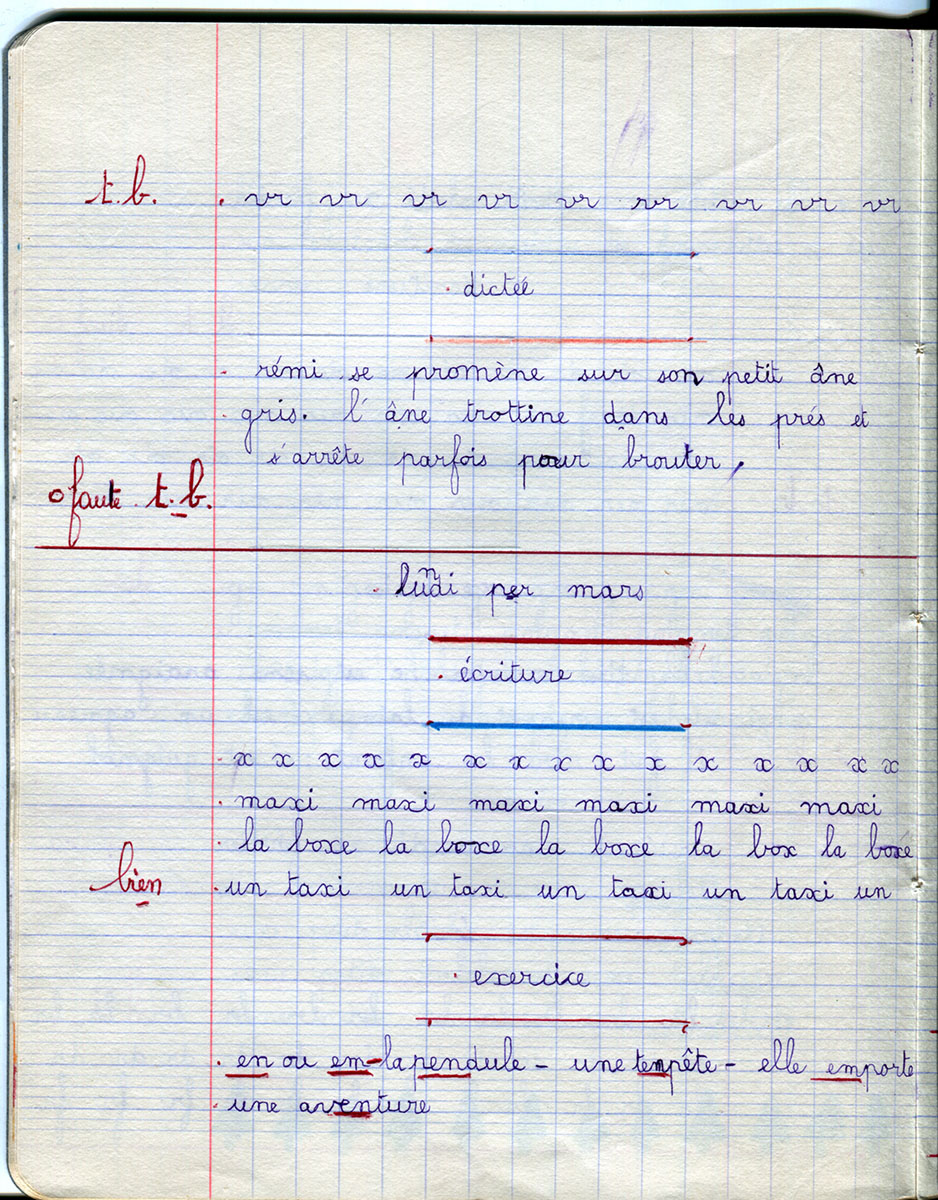 t.b. . vr vr vr vr vr vr vr vr vr
. dictée
. rémi se promène sur son petit âne
. gris. l'âne trottine dans les prés et
s'arrête parfois pour brouter.
0 faute t.b.
. lundi per mars
. écriture
. x x x x x x x x x x x x x x x
. maxi maxi maxi maxi maxi maxi
. la boxe la boxe la boxe la box la boxe
bien . un taxi un taxi un taxi un taxi un
. exercice
. en ou em - la pendule - une tempête - elle emporte
. une aventure